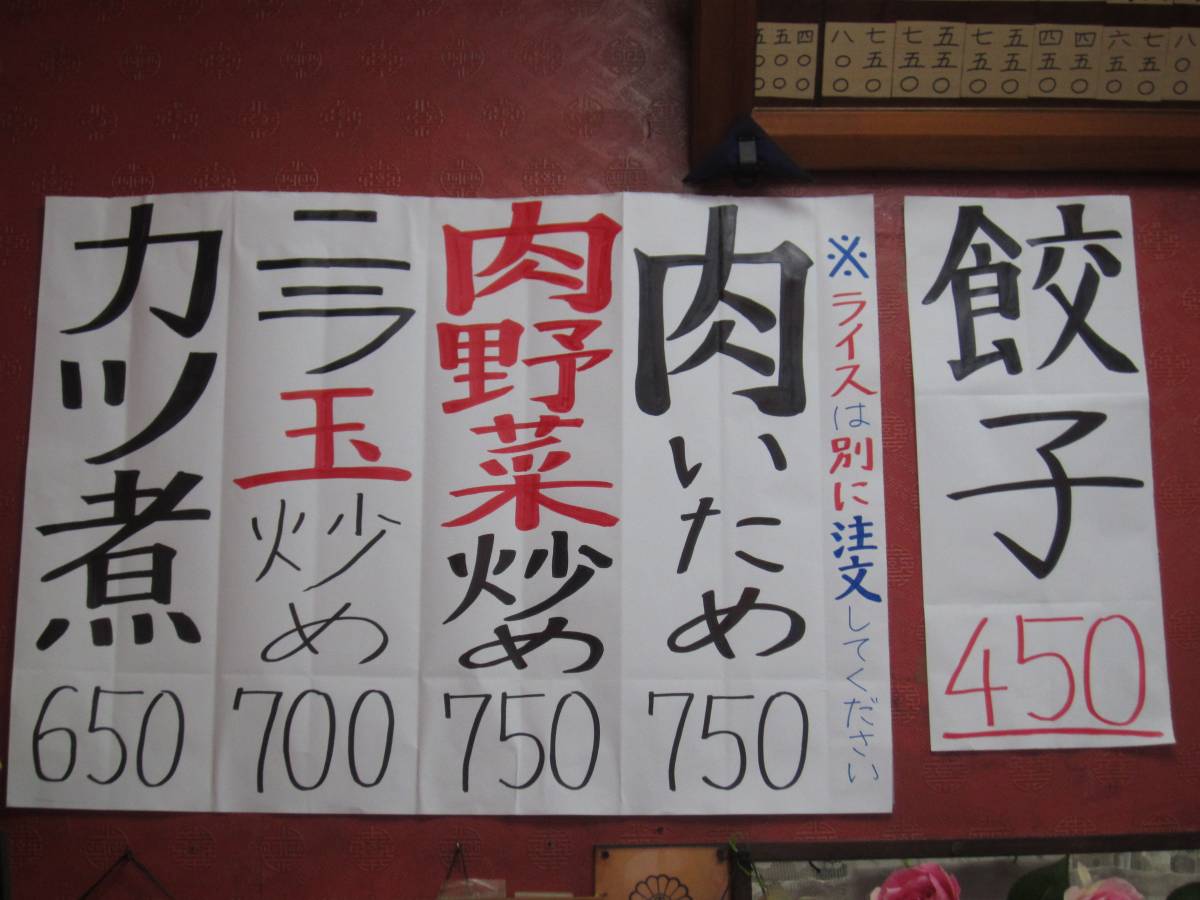 五〇〇
五〇〇
四〇〇
八〇〇
七五〇
七五〇
五五〇
七五〇
五五〇
四五〇
四五〇
六五〇
七五〇
八〇〇
餃子
450
※ライスは別に注文してください
肉いため
750
肉野菜炒め
750
ニラ玉炒め
700
カツ煮
650